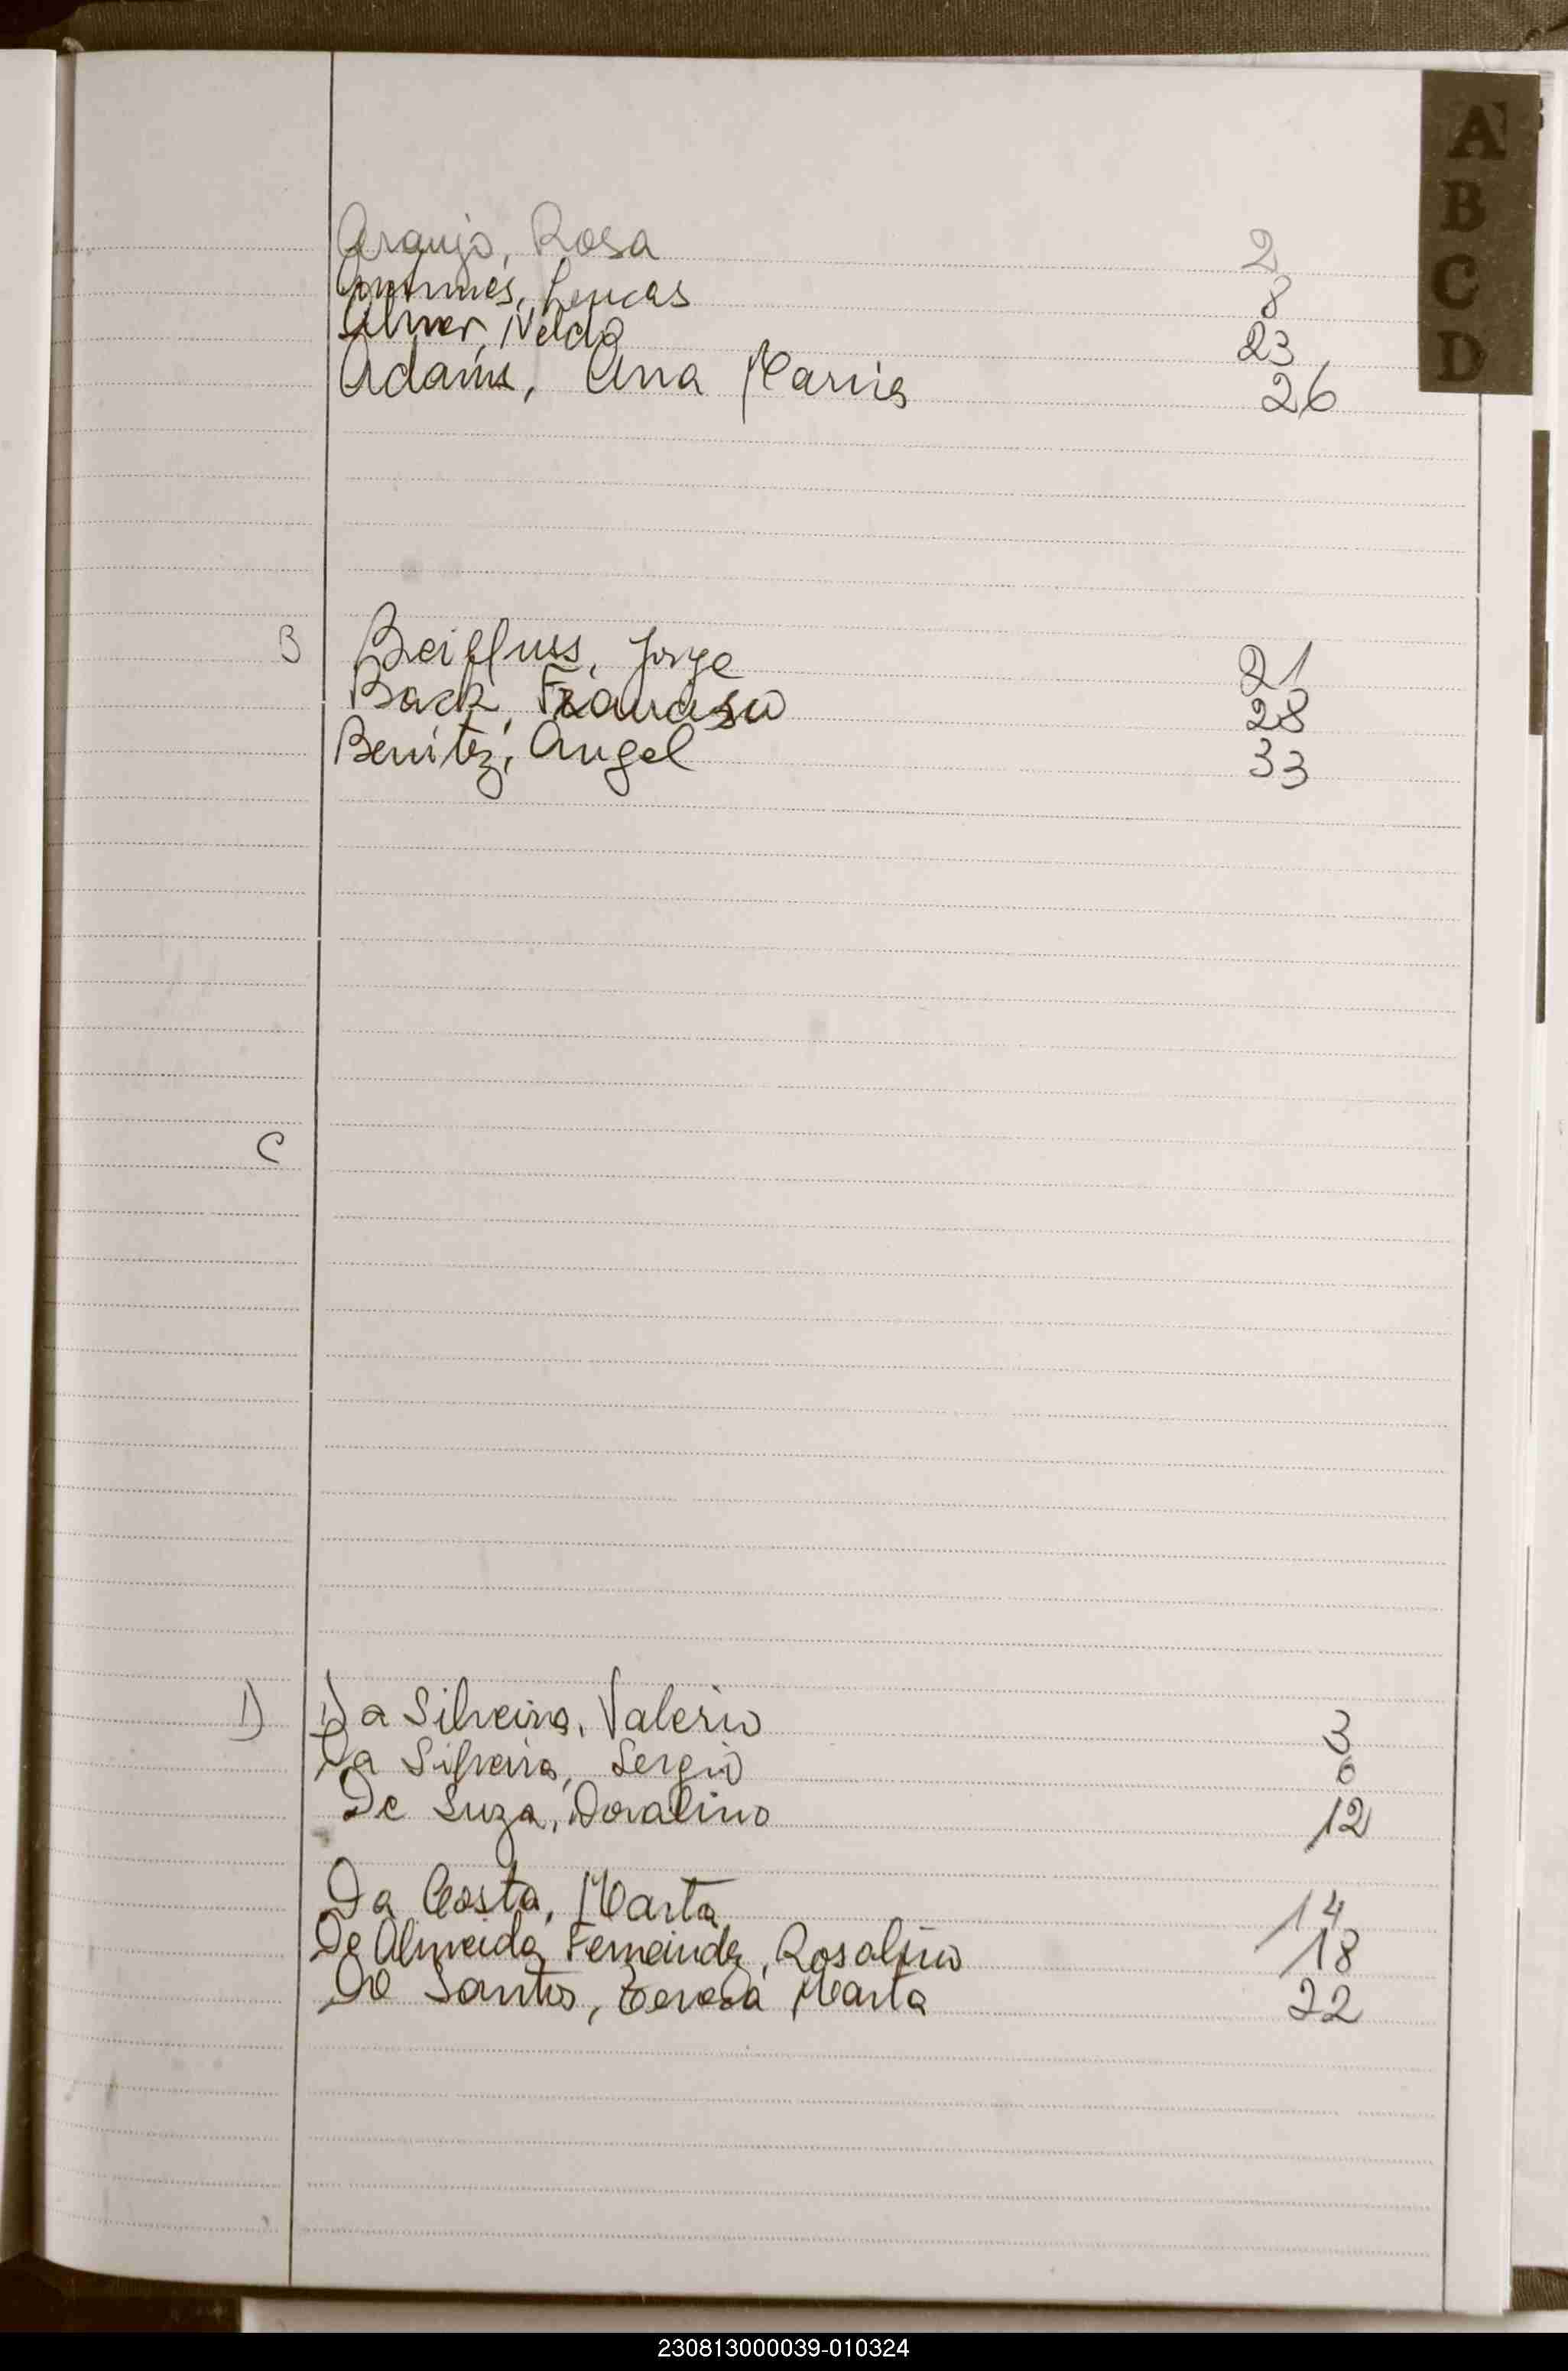 A
B
C
D
Araujo, Rosa 2
Antunes, Lucas 8
Almer, Nelda 23
Adams, Ana Maria 26
B Beilfuss, Jorge 21
Back, Francisco 28
Benitez, Angel 33
C
D Da Silveira, Valerio 3
Da Silveira, Sergio 6
De Suza, Doralino 12
Da Costa, Marta 14
De Almeida Fernandez, Rosalino 18
Do Santos, Teresa Marta 22
230813000039-010324